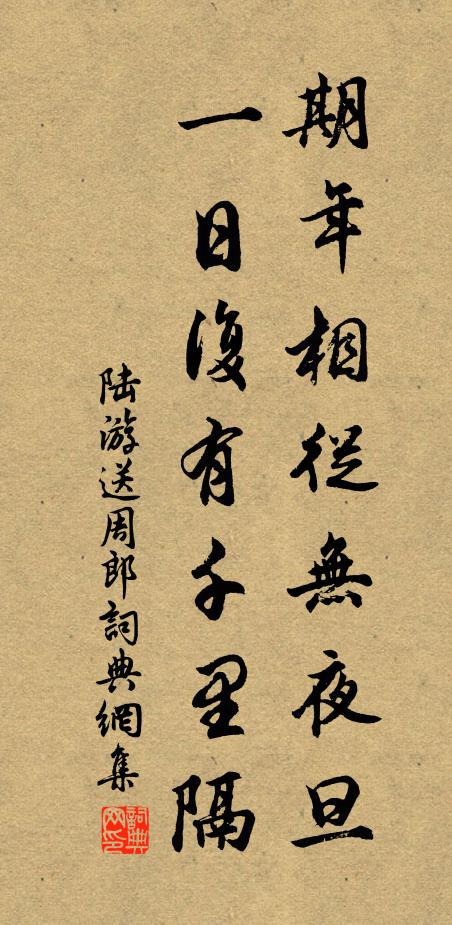 期年相從無夜旦
一日復有千里隔
陆游送周郎詞典網集
詞典網印